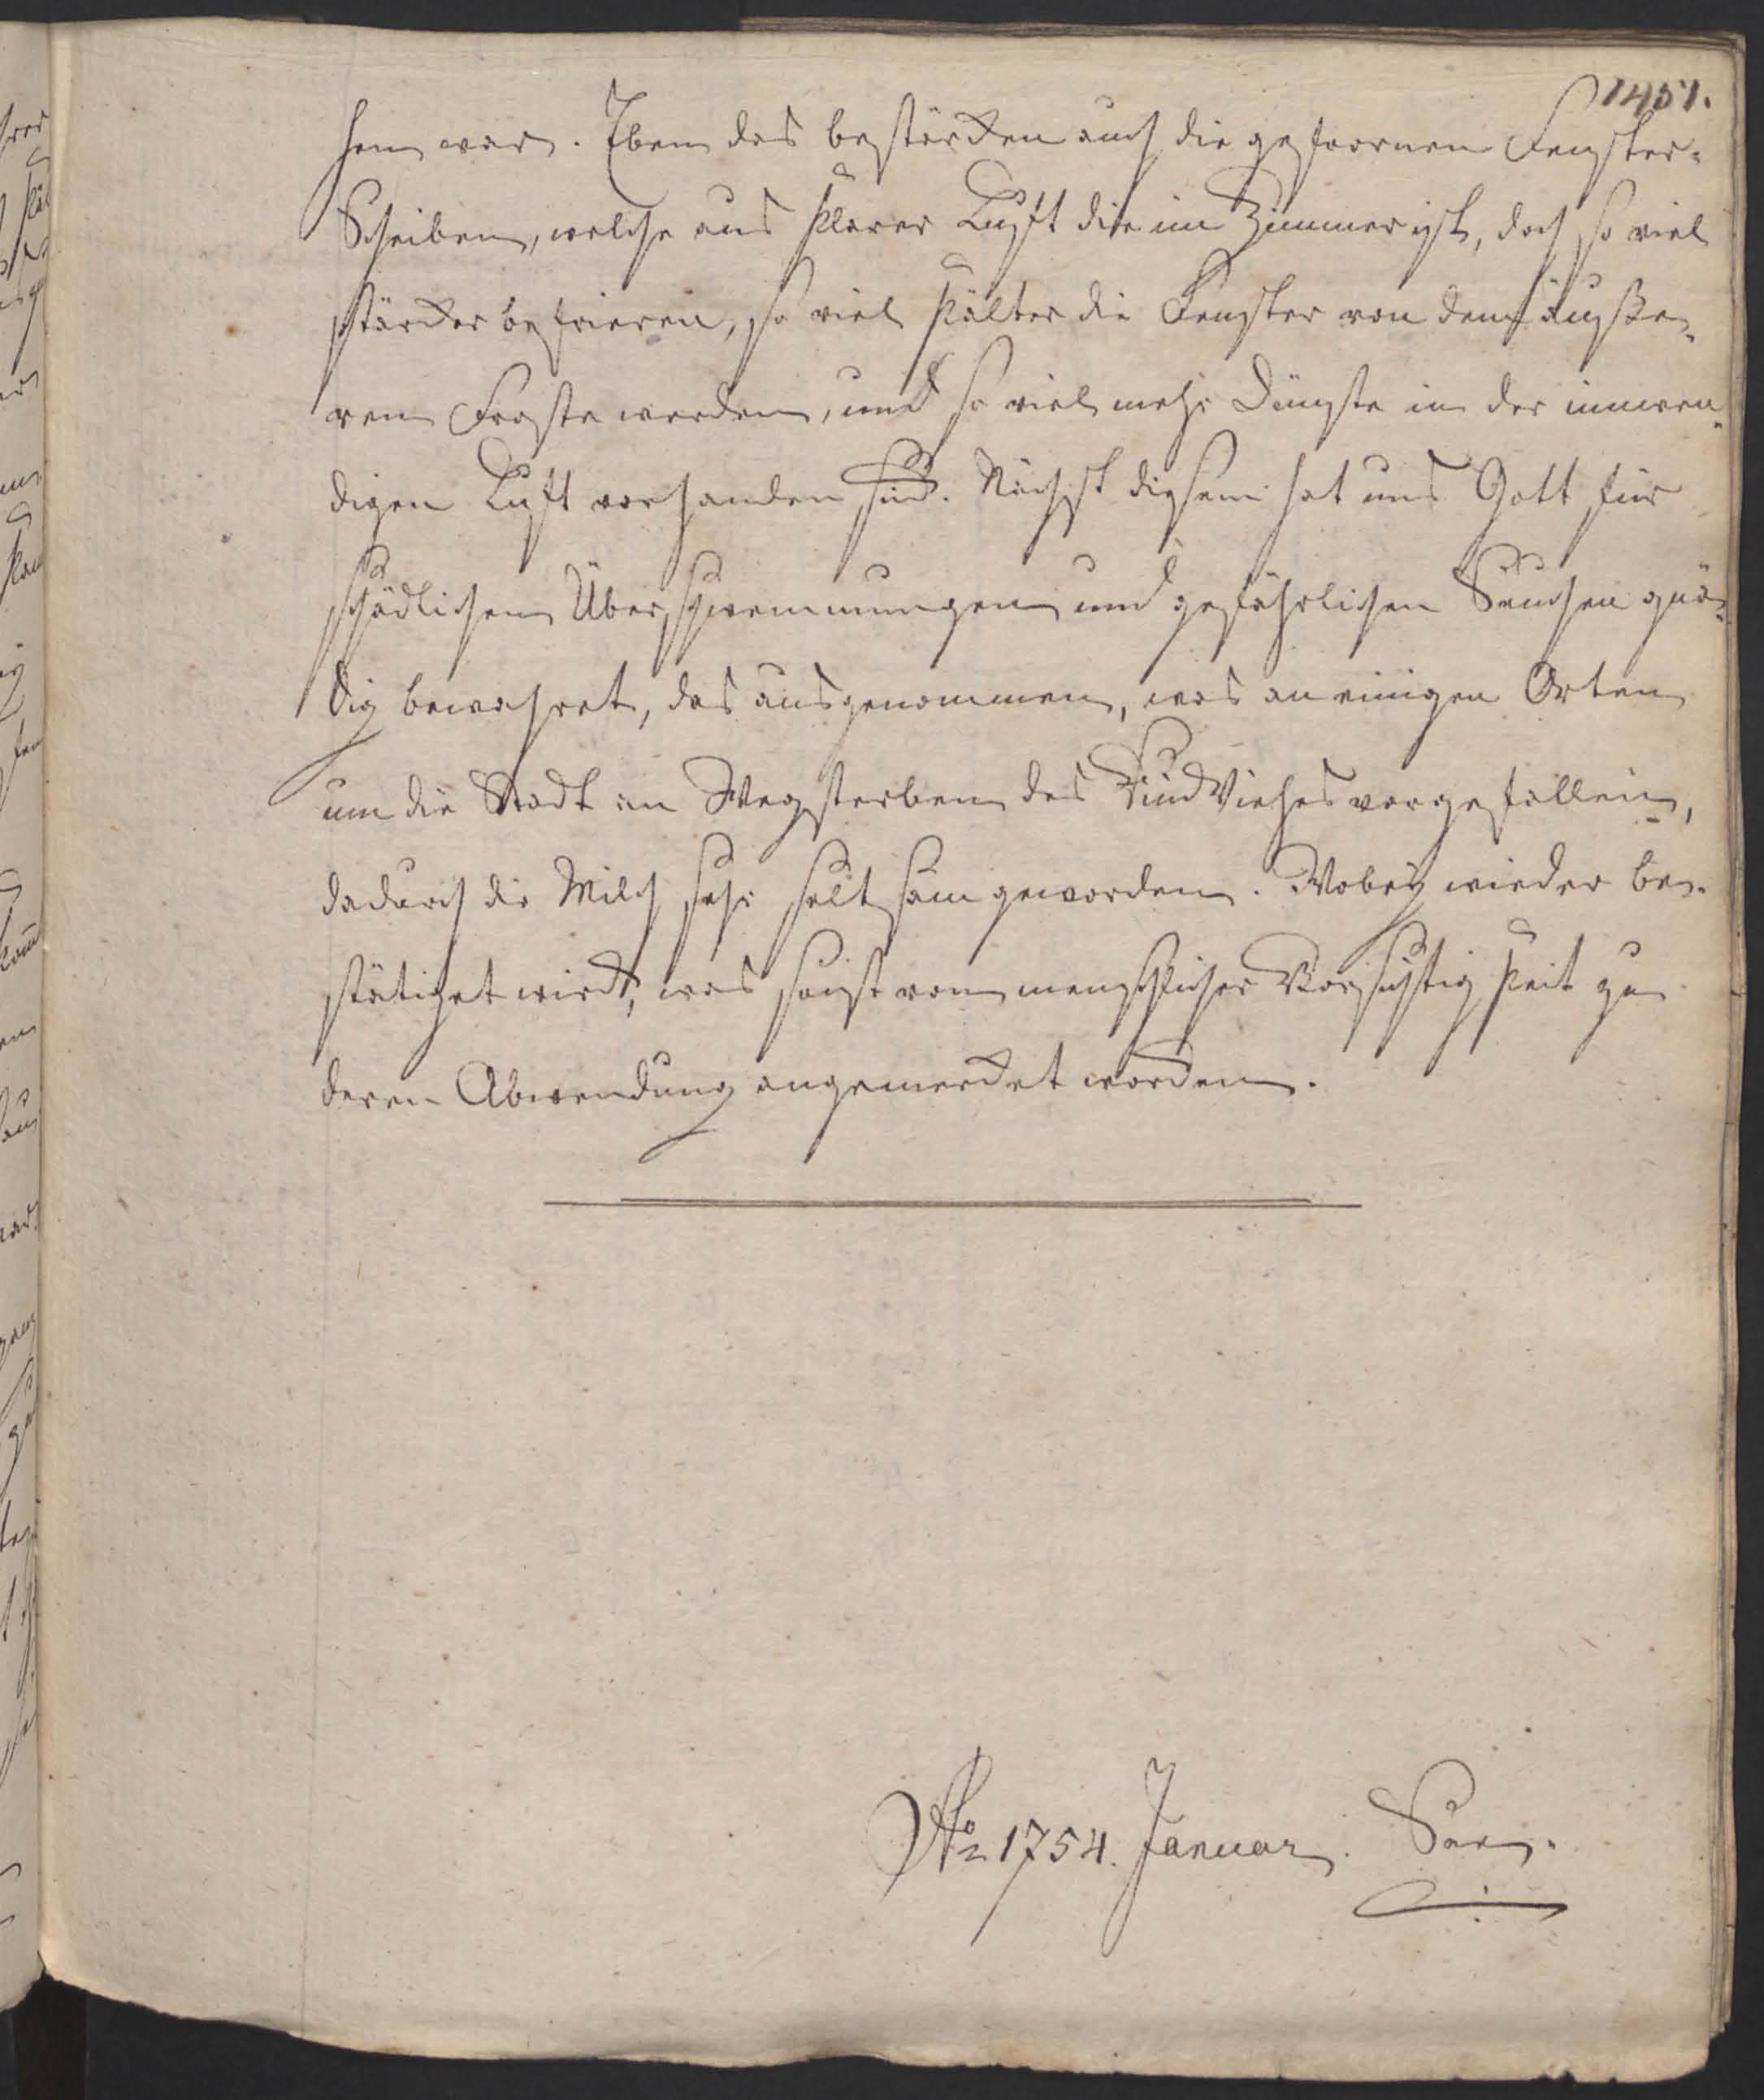 1451.
hen war. Eben das bestärcken auch die gefrornen Fenster-
Scheiben, welche aus klarer Lufft die im Zimmer ist, doch so viel
stärcker befrieren, so viel kälter die Fenster von dem äuße-
ren Froste werden, und so viel mehr Dünste in der inwen-
digen Lufft vorhanden sind. Nächst diesem hat uns Gott für
schädlichen Überschwemmungen und gefährlichen Seuchen gnä-
dig bewahret, das ausgenommen, was an einigen Orten
um die Stadt an Wegsterben des Rind Viehes vorgefallen,
dadurch die Milch sehr seltsam geworden. Wobey wieder be-
stätiget wird, was sonst von menschlicher Vorsichtigkeit zu
deren Abwendung angemercket worden.
Ao 1754. Januar.